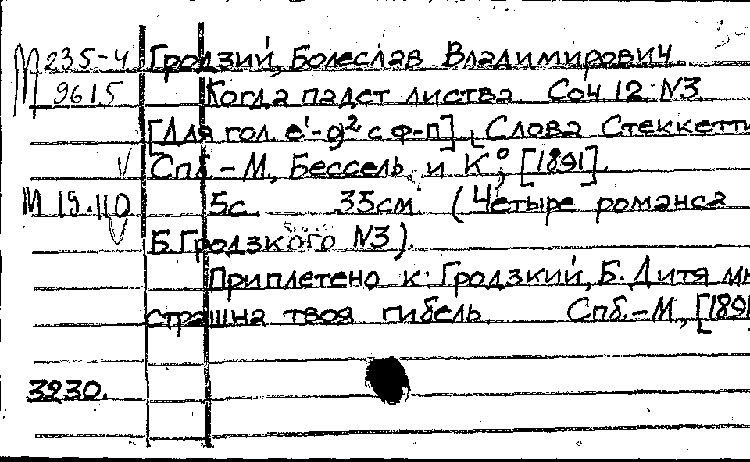 М 235-4 Гродзий, Болеслав Владимирович.
9615 Когда падет листва. Соч 12 №3
[Для гол. e¹-g² с ф-п]. Слова Стеккетти
Спб.-М, Бессель и К°, [1891].
М 15.110 5с. 35см. (Четыре романса
Б.Гродзкого №3).
Приплетено к: Гродзкий, Б. Дитя мн
страшна твоя гибель. Спб.-М, [1891
3230.